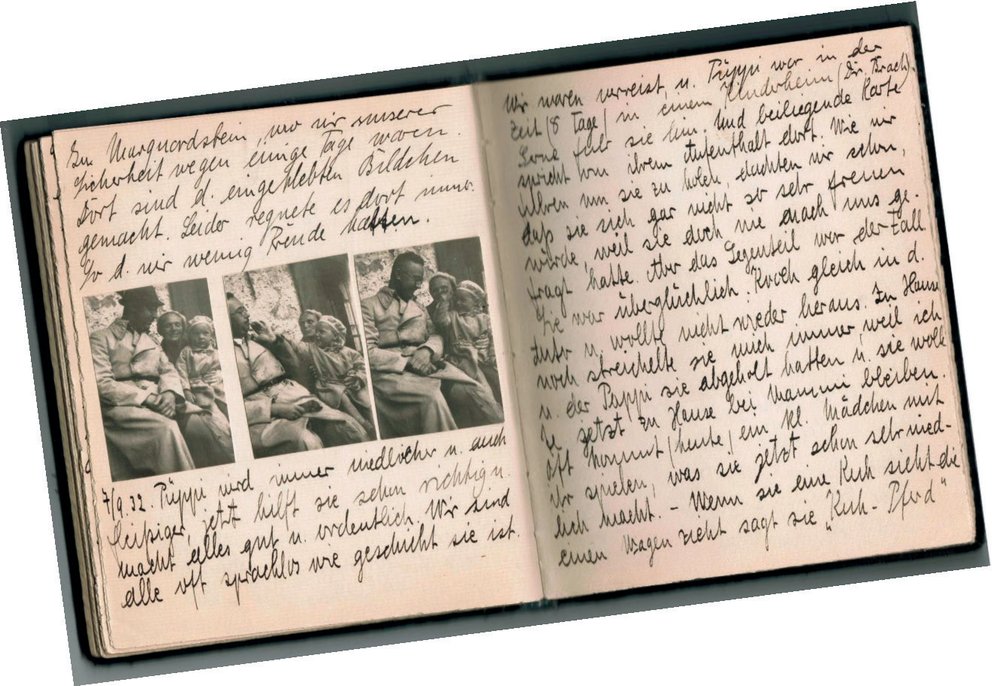 In Marquardstein, wo wir unserer
Sicherheit wegen einige Tage waren.
Dort sind d. eingeklebten Bildchen
gemacht. Leider regnete es dort immer.
So d. wir wenig Freude hatten.
7/9.32. Püppi wird immer niedlicher u. auch
fleißiger, jetzt hilft sie schon richtig u.
macht alles gut u. ordentlich. Wir sind
alle oft sprachlos wie geschickt sie ist.
Wir waren verreist u. Püppi war in der
Zeit (8 Tage) in einem Kinderheim (Dr.
gab sie hin. Und beiliegende Karte
spricht von ihrem Aufenthalt dort. Wie wir
um sie zu holen, dachten wir schon,
daß sie sich gar nicht so sehr freuen
würde, weil sie doch nie nach uns ge-
fragt hatte. Aber das Gegenteil war der Fall
Sie war überglücklich. Kroch gleich in d.
Auto u. wollte nicht wieder heraus. Zu Hause
noch streichelte sie mich immer, weil ich
u. der Pappi sie abgeholt hatten u. sie wolle
jetzt zu Hause bei Mammi bleiben.
Oft kommt (heute) ein kl. Mädchen mit
ihr spielen, was sie jetzt schon sehr nied-
lich macht. – Wenn sie eine Kuh sieht die
einen Wagen zieht sagt sie „Kuh-Pferd"